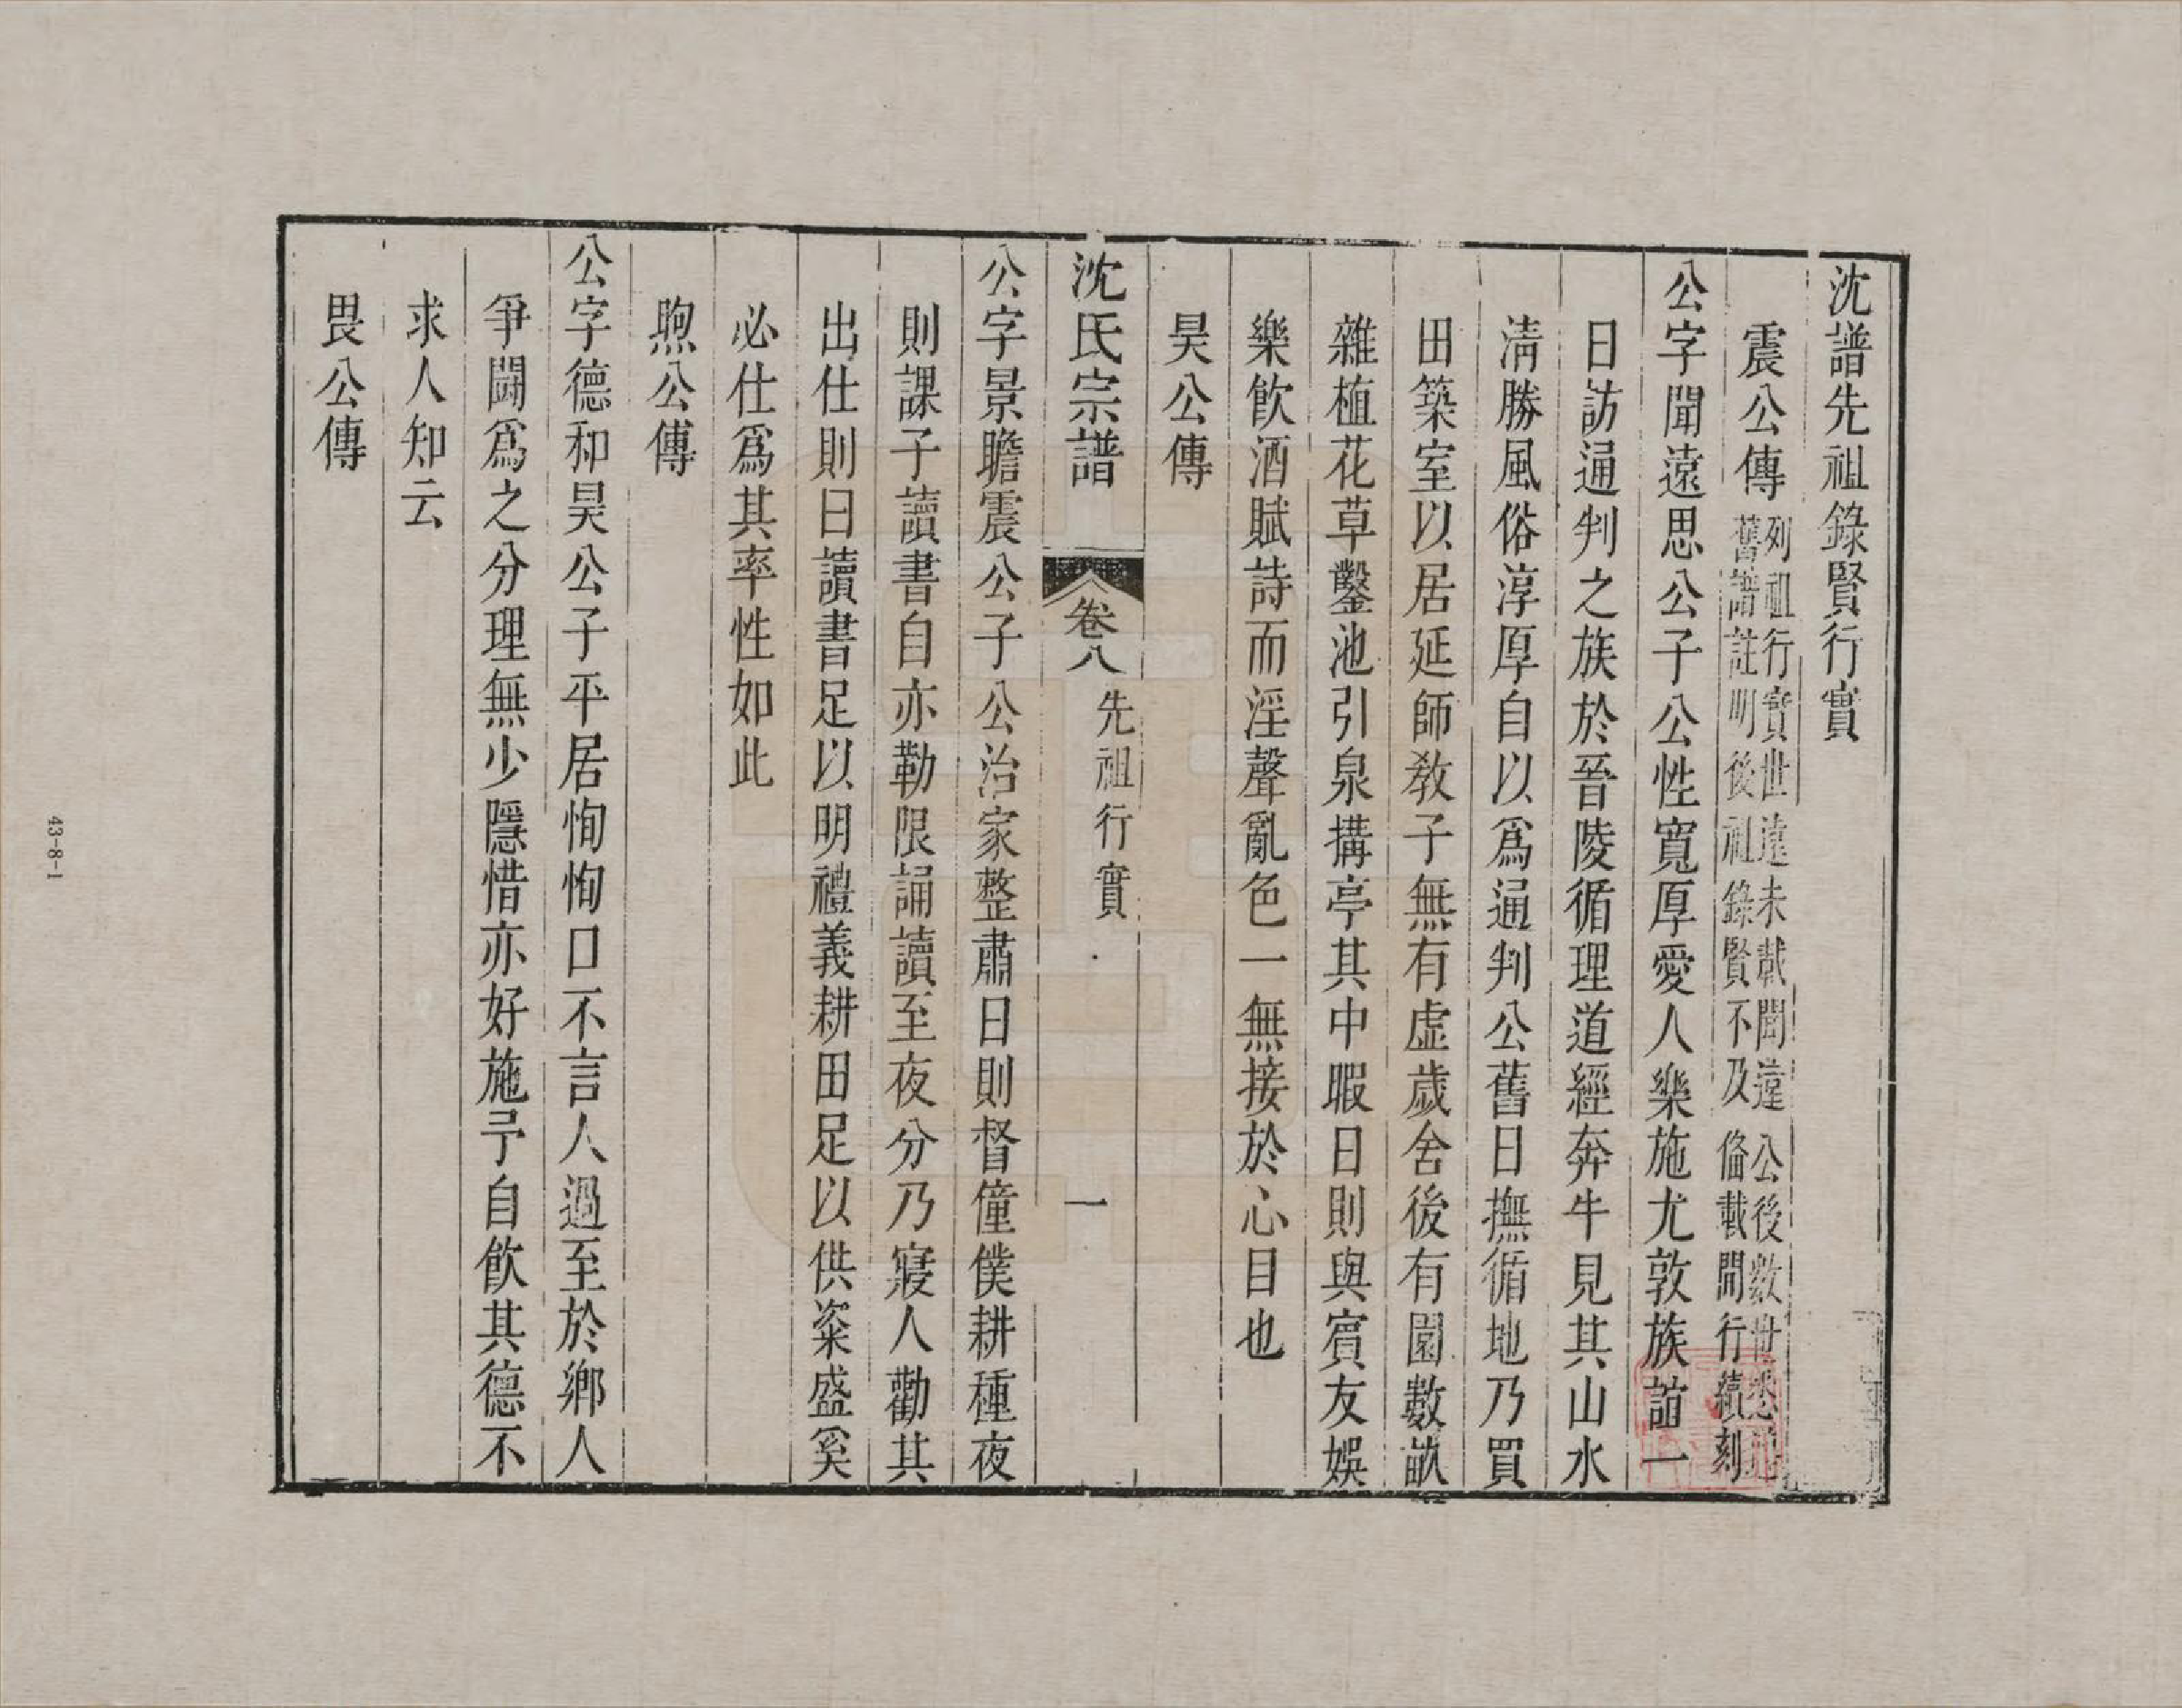 沈譜先祖錄賢行實
震公傳 列祖行實世遠未載聞遠公後數世
舊譜註明後祖錄賢不及俻載開行績刻
公字聞遠思公子公性寬厚愛人樂施尤敦族誼一
日訪通判之族於晉陵循理道經奔牛見其山水
清勝風俗淳厚自以爲通判公舊日撫循地乃買
田築室以居延師教子無有虛歲舍後有園數畝
雜植花草鑿池引泉搆亭其中暇日則與賓友娛
樂飮酒賦詩而淫聲亂色一無接於心目也
昊公傳
沈氏宗譜 卷八 先祖行實 一
公字景瞻震公子公治家整肅日則督僮僕耕種夜
則課子讀書自亦勒限誦讀至夜分乃寢人勸其
出仕則曰讀書足以明禮義耕田足以供粢盛奚
必仕爲其率性如此
煦公傳
公字德和昊公子平居恂恂口不言人過至於鄉人
爭鬪爲之分理無少隱惜亦好施予自飮其德不
求人知云
畏公傳
43-8-1